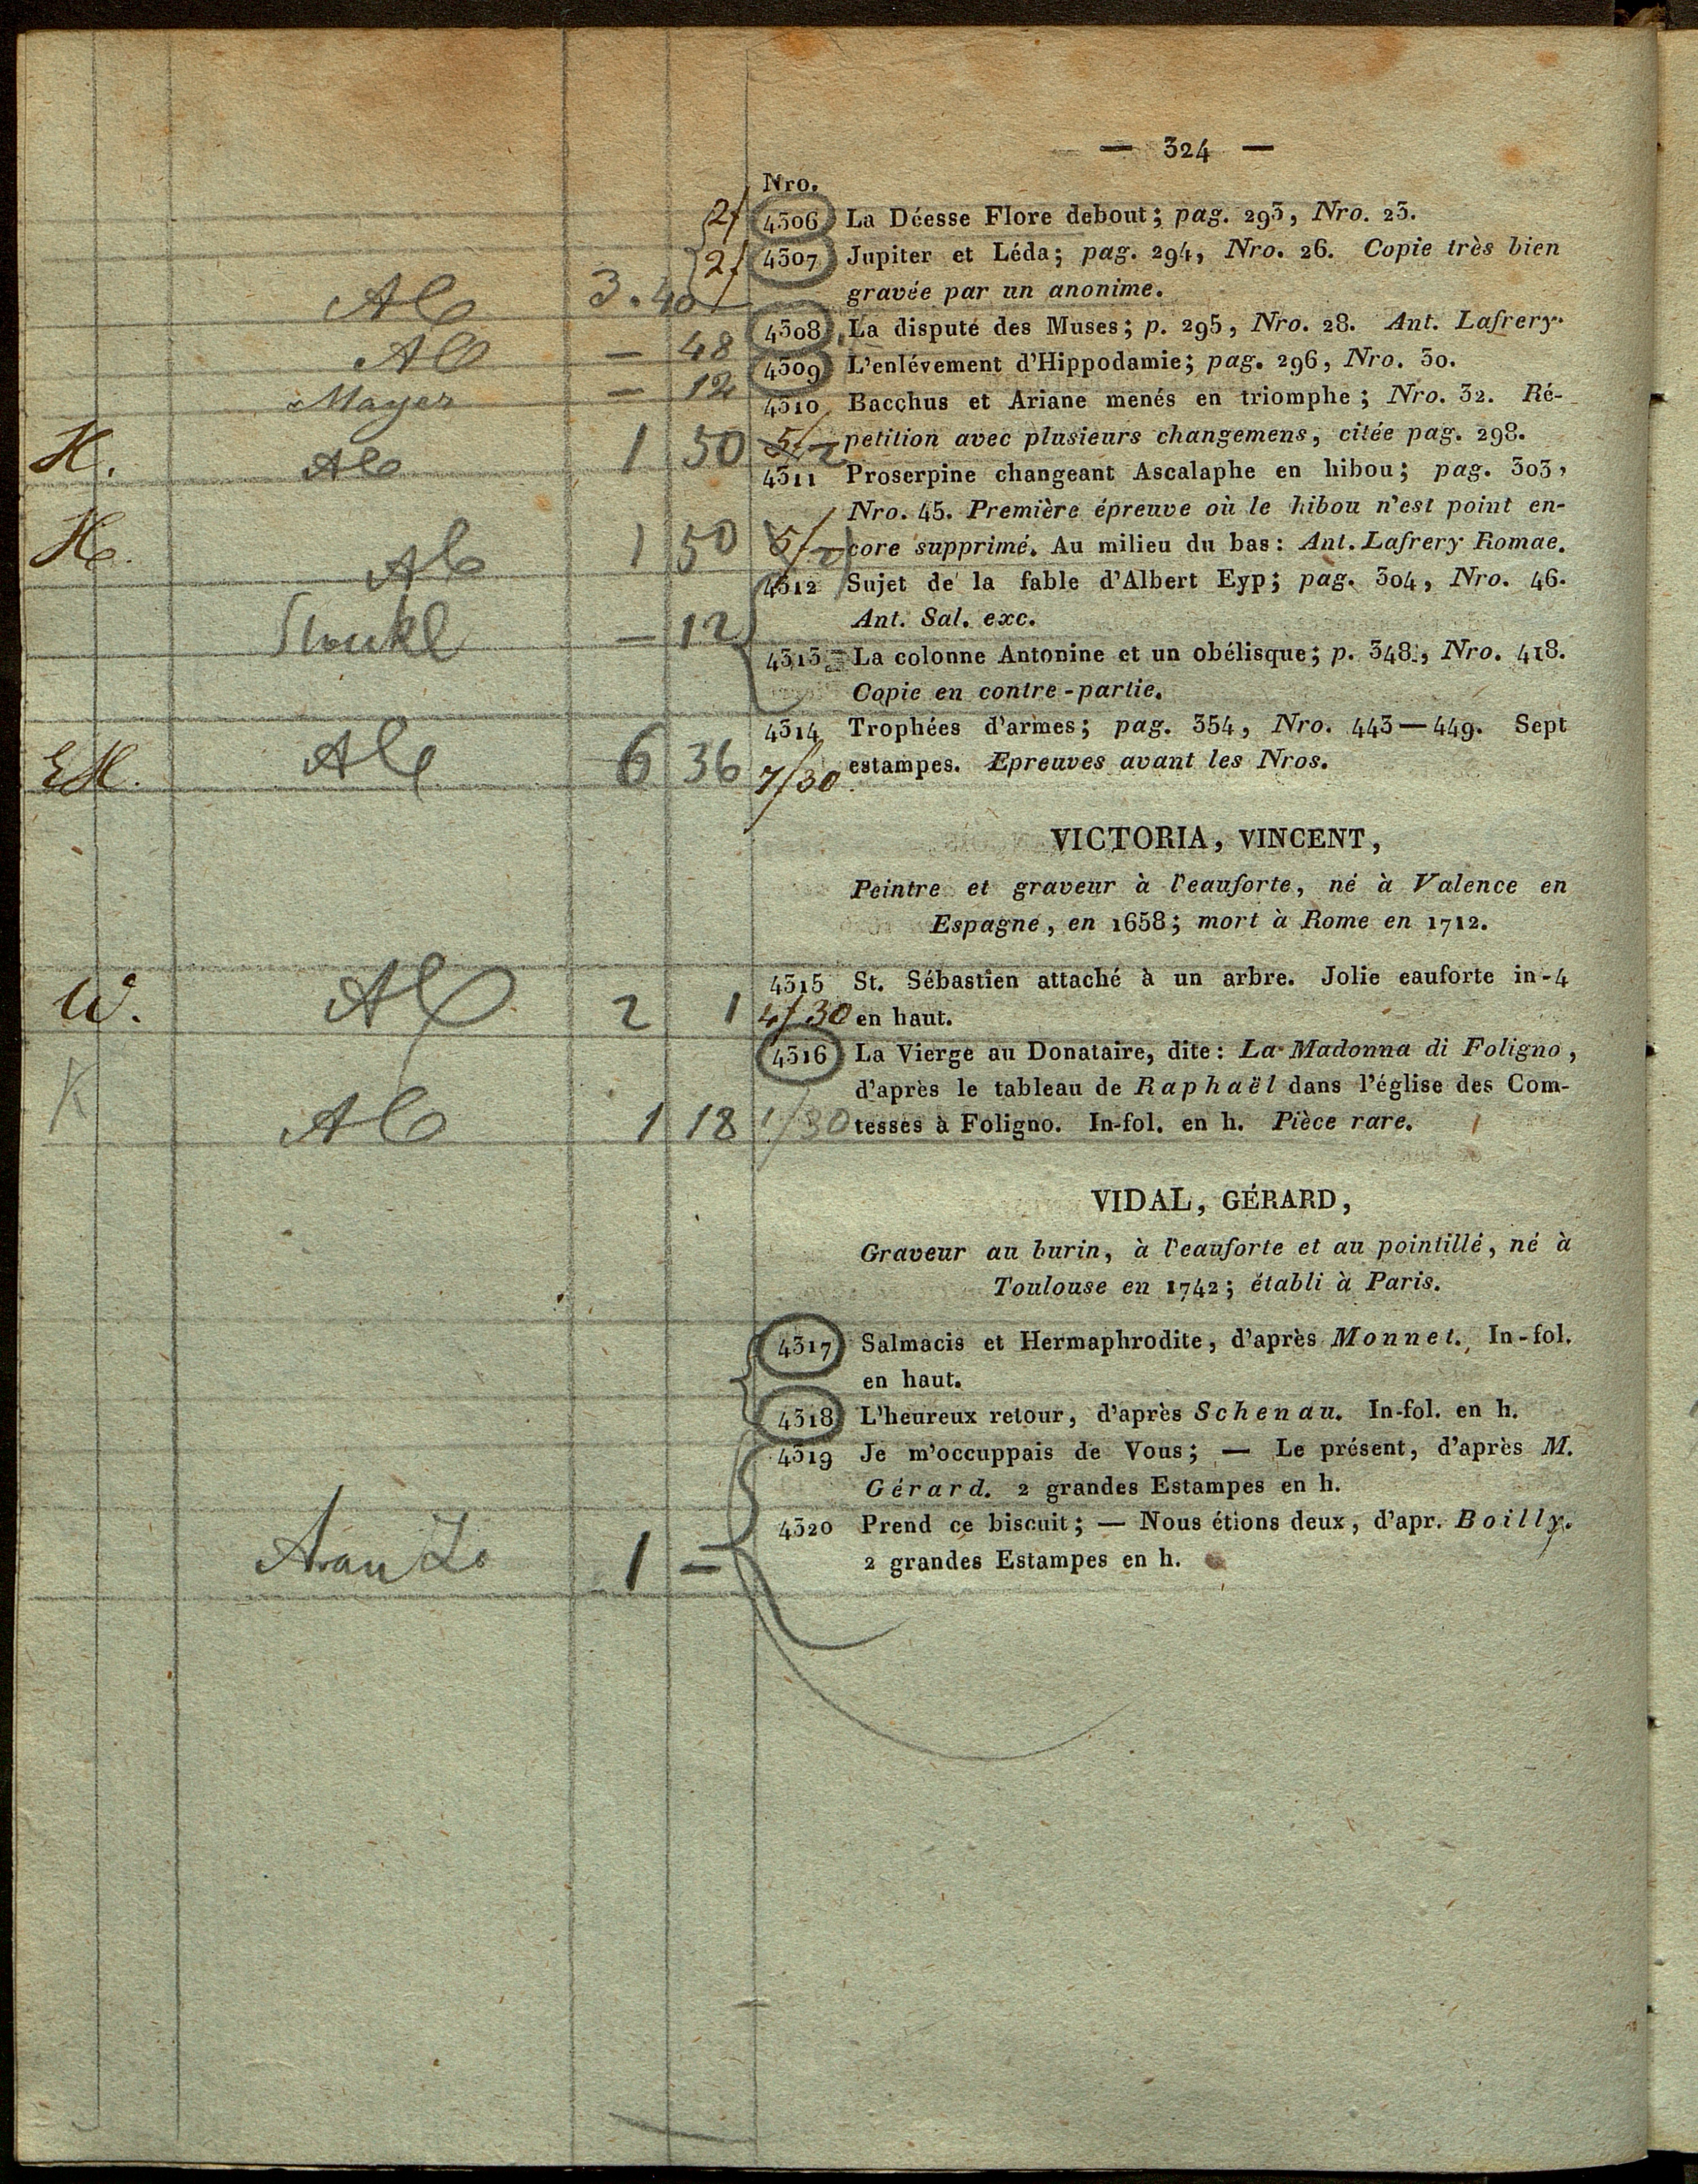 — 324 —
Nro.
2/ 4306 La Déesse Flore debout; pag. 293, Nro. 23.
2/ 4307 Jupiter et Léda; pag. 294, Nro. 26. Copie très bien
Alb 3. 40 gravée par un anonime.
Alb — 48 4308 La dispute des Muses; p. 295, Nro. 28. Ant. Lafrery.
Mayer — 12 4309 L'enlévement d'Hippodamie; pag. 296, Nro. 30.
4310 Bacchus et Ariane menés en triomphe; Nro. 32. Ré-
H. Alb 1 50 5/— petition avec plusieurs changemens, citée pag. 298.
4311 Proserpine changeant Ascalaphe en hibou; pag. 303,
Nro. 45. Première épreuve où le hibou n'est point en-
H. Alb 1 50 5/— core supprimé. Au milieu du bas: Ant. Lafrery Romae.
4312 Sujet de la fable d'Albert Eyp; pag. 304, Nro. 46.
— 12 Ant. Sal. exc.
4313 La colonne Antonine et un obélisque; p. 348, Nro. 418.
Copie en contre-partie.
4314 Trophées d'armes; pag. 354, Nro. 443—449. Sept
EH. Alb 6 36 7/30 estampes. Epreuves avant les Nros.
VICTORIA, VINCENT,
Peintre et graveur à l'eauforte, né à Valence en
Espagne, en 1658; mort à Rome en 1712.
4315 St. Sébastien attaché à un arbre. Jolie eauforte in-4
W. Alb 2 1 4/30 en haut.
4316 La Vierge au Donataire, dite: La Madonna di Foligno,
d'après le tableau de Raphaël dans l'église des Com-
K Alb 1 18 1/30 tesses à Foligno. In-fol. en h. Pièce rare.
VIDAL, GÉRARD,
Graveur au burin, à l'eauforte et au pointillé, né à
Toulouse en 1742; établi à Paris.
4317 Salmacis et Hermaphrodite, d'après Monnet. In-fol.
en haut.
4318 L'heureux retour, d'après Schenau. In-fol. en h.
4319 Je m'occuppais de Vous; — Le présent, d'après M.
Gérard. 2 grandes Estampes en h.
4320 Prend ce biscuit; — Nous étions deux, d'apr. Boilly.
1 — 2 grandes Estampes en h.